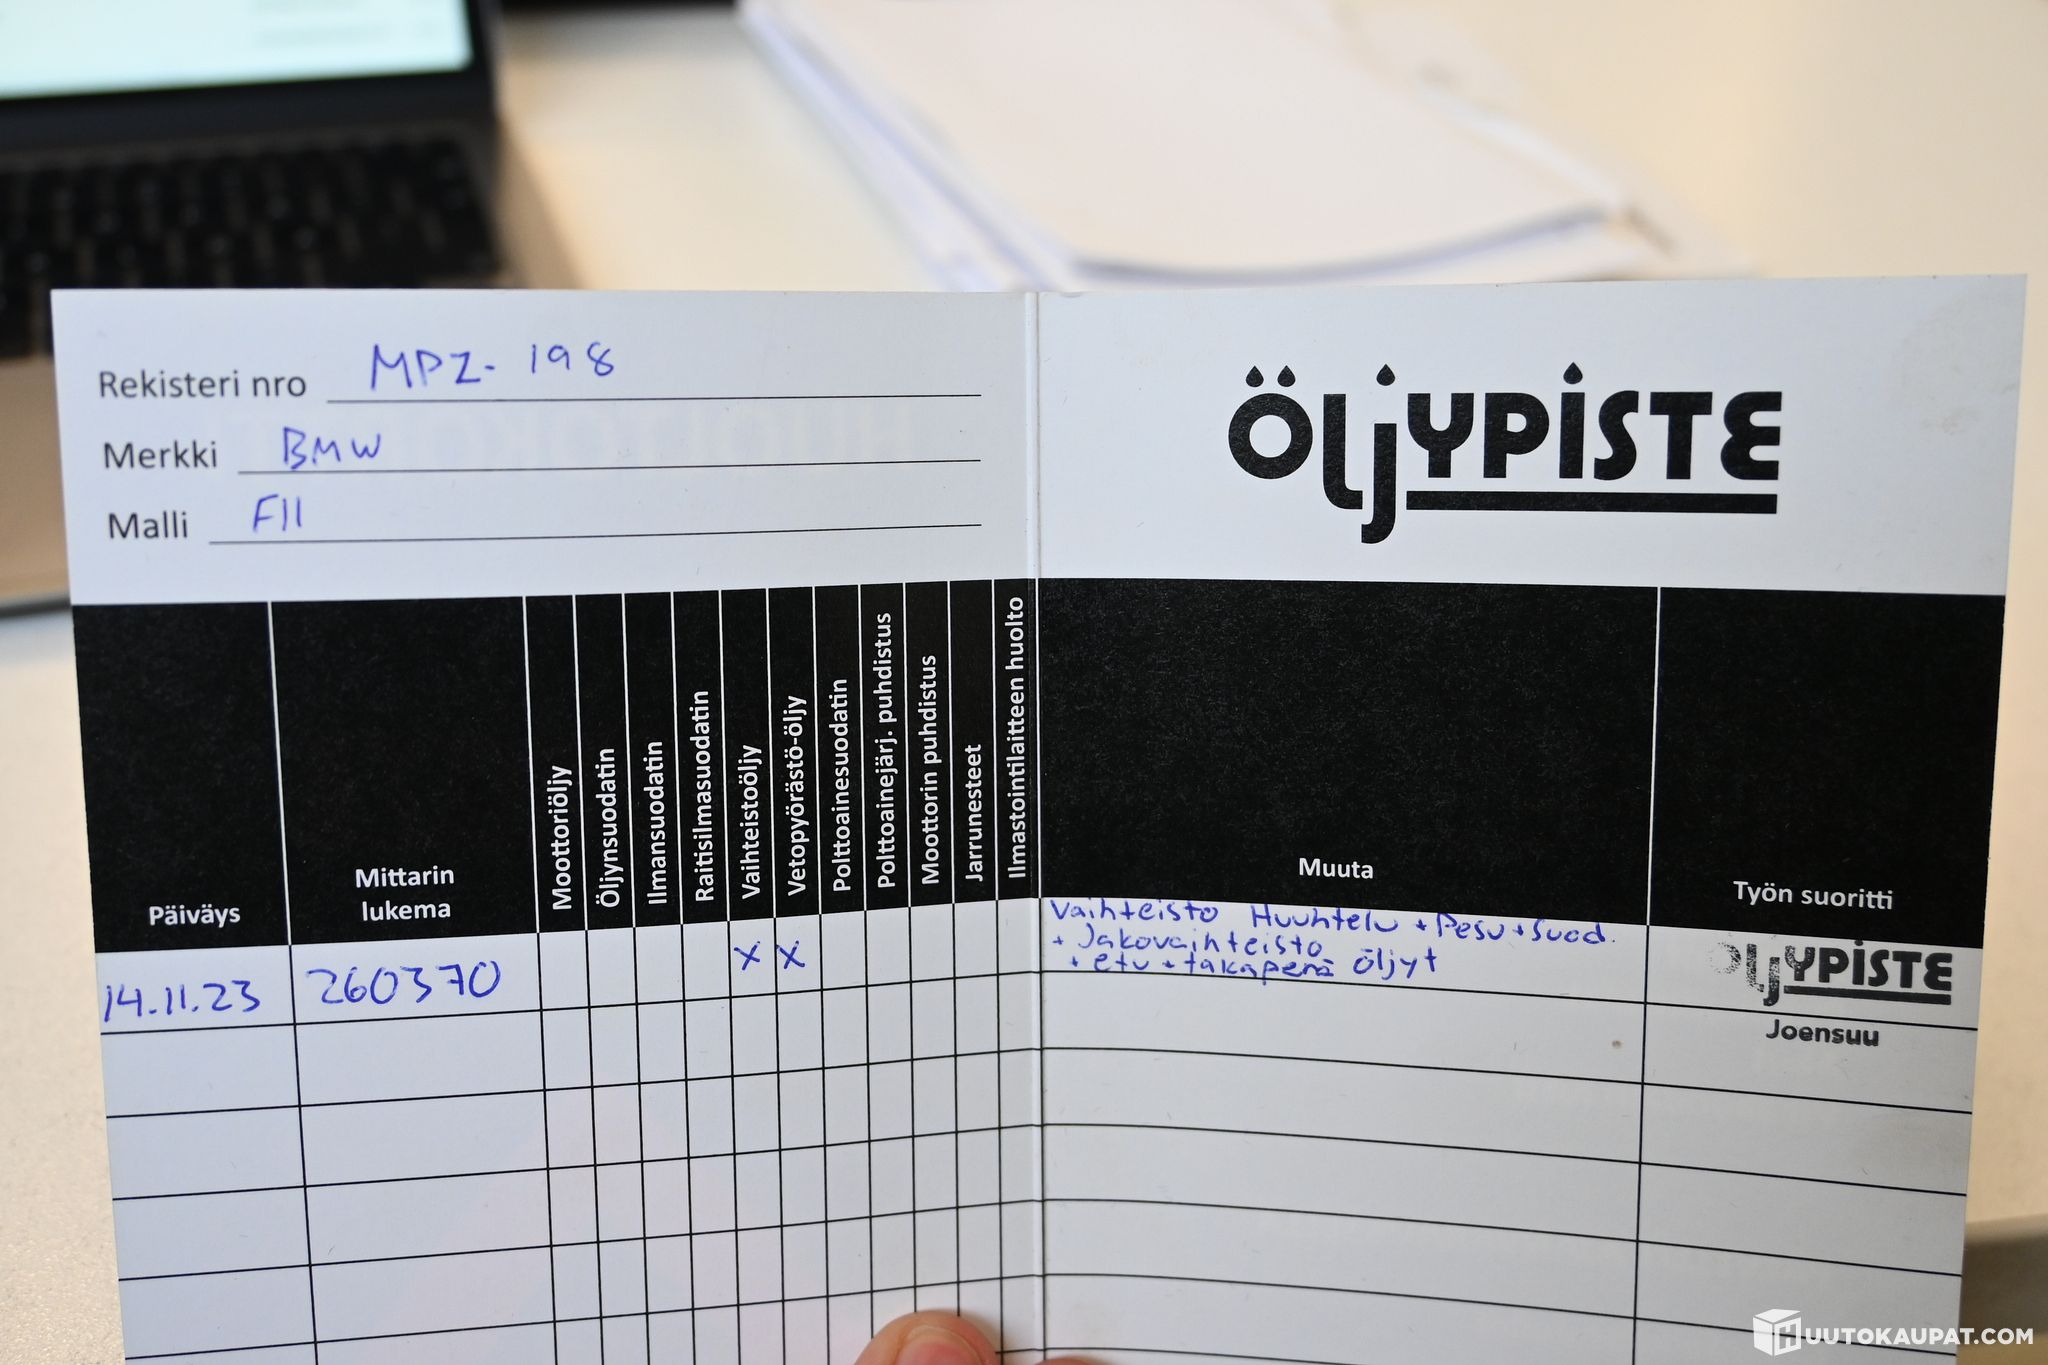 Rekisteri nro MPZ-198
Merkki BMW
Malli F11
ÖLJYPISTE
Päiväys
Mittarin
lukema
Moottoriöljy
Öljynsuodatin
Ilmansuodatin
Raitisilmasuodatin
Vaihteistoöljy
Vetopyörästö-öljy
Polttoainesuodatin
Polttoainejärj. puhdistus
Moottorin puhdistus
Jarrunesteet
Ilmastointilaitteen huolto
Muuta
Työn suoritti
14.11.23 260370 x x
Vaihteisto Huuhtelu + Pesu + Suod.
+ Jakovaihteisto
+ etu + takaperä öljyt
ÖLJYPISTE
Joensuu
HUUTOKAUPAT.COM